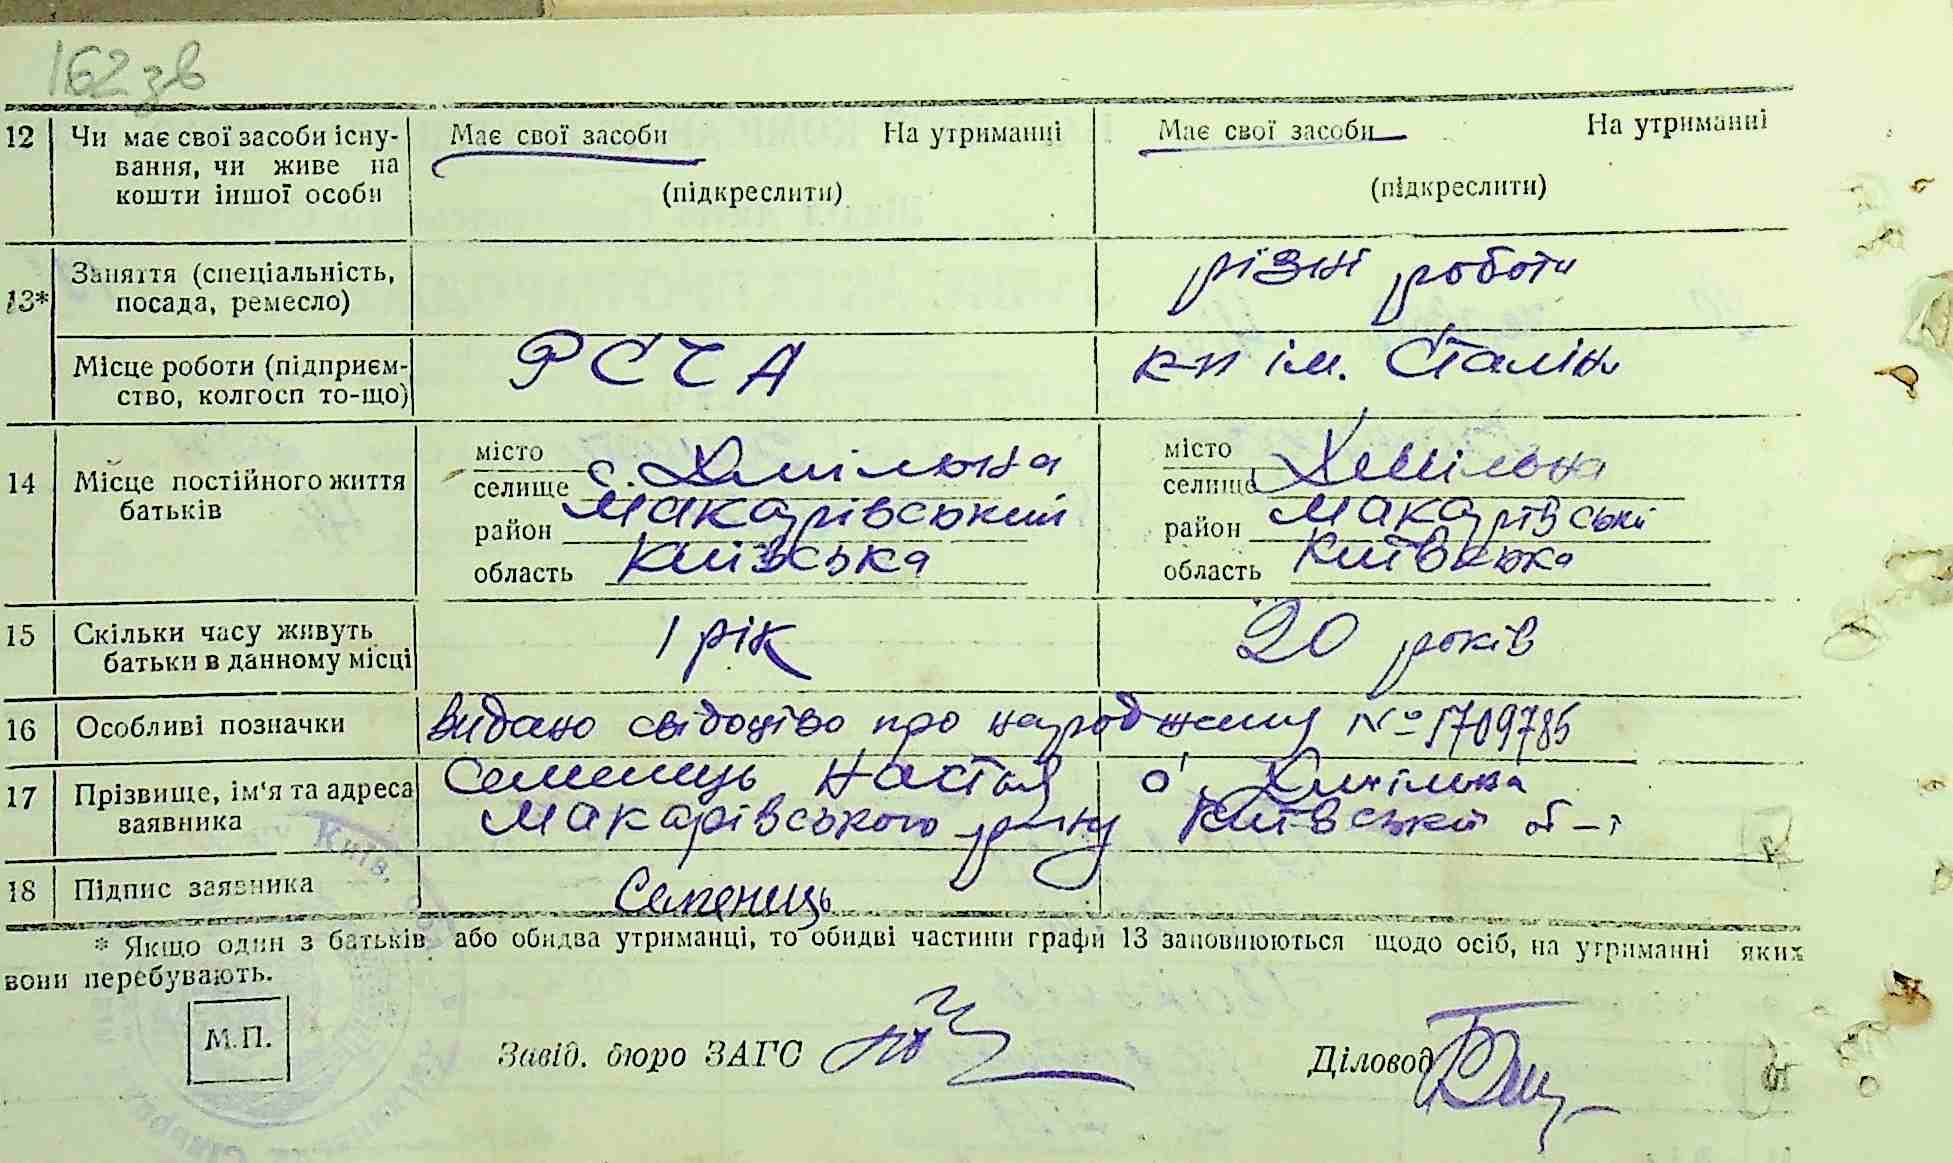 162 зв
12 Чи має свої засоби існу- Має свої засоби На утриманці Має свої засоби На утриманні
вання, чи живе на
кошти іншої особи (підкреслити) (підкреслити)
13* Заняття (спеціальність, різні роботи
посада, ремесло)
Місце роботи (підприєм- РСЧА к-п ім. Сталін
ство, колгосп то-що)
місто місто
14 Місце постійного життя селище с. Хмільна селище Хмільна
батьків район Макарівський район Макарівські
область Київська область Київська
15 Скільки часу живуть 1 рік 20 років
батьки в данному місці
16 Особливі позначки Видано свідоцтво про народження № 1709785
17 Прізвище, ім'я та адреса Семенець Настья с. Хмільна
заявника Макарівського р-ну Київській об-і
18 Підпис заявника Семенець
* Якщо один з батьків або обидва утриманці, то обидві частини графи 13 заповнюються щодо осіб, на утриманні яких
вони перебувають.
М.П. Завід. бюро ЗАГС Діловод